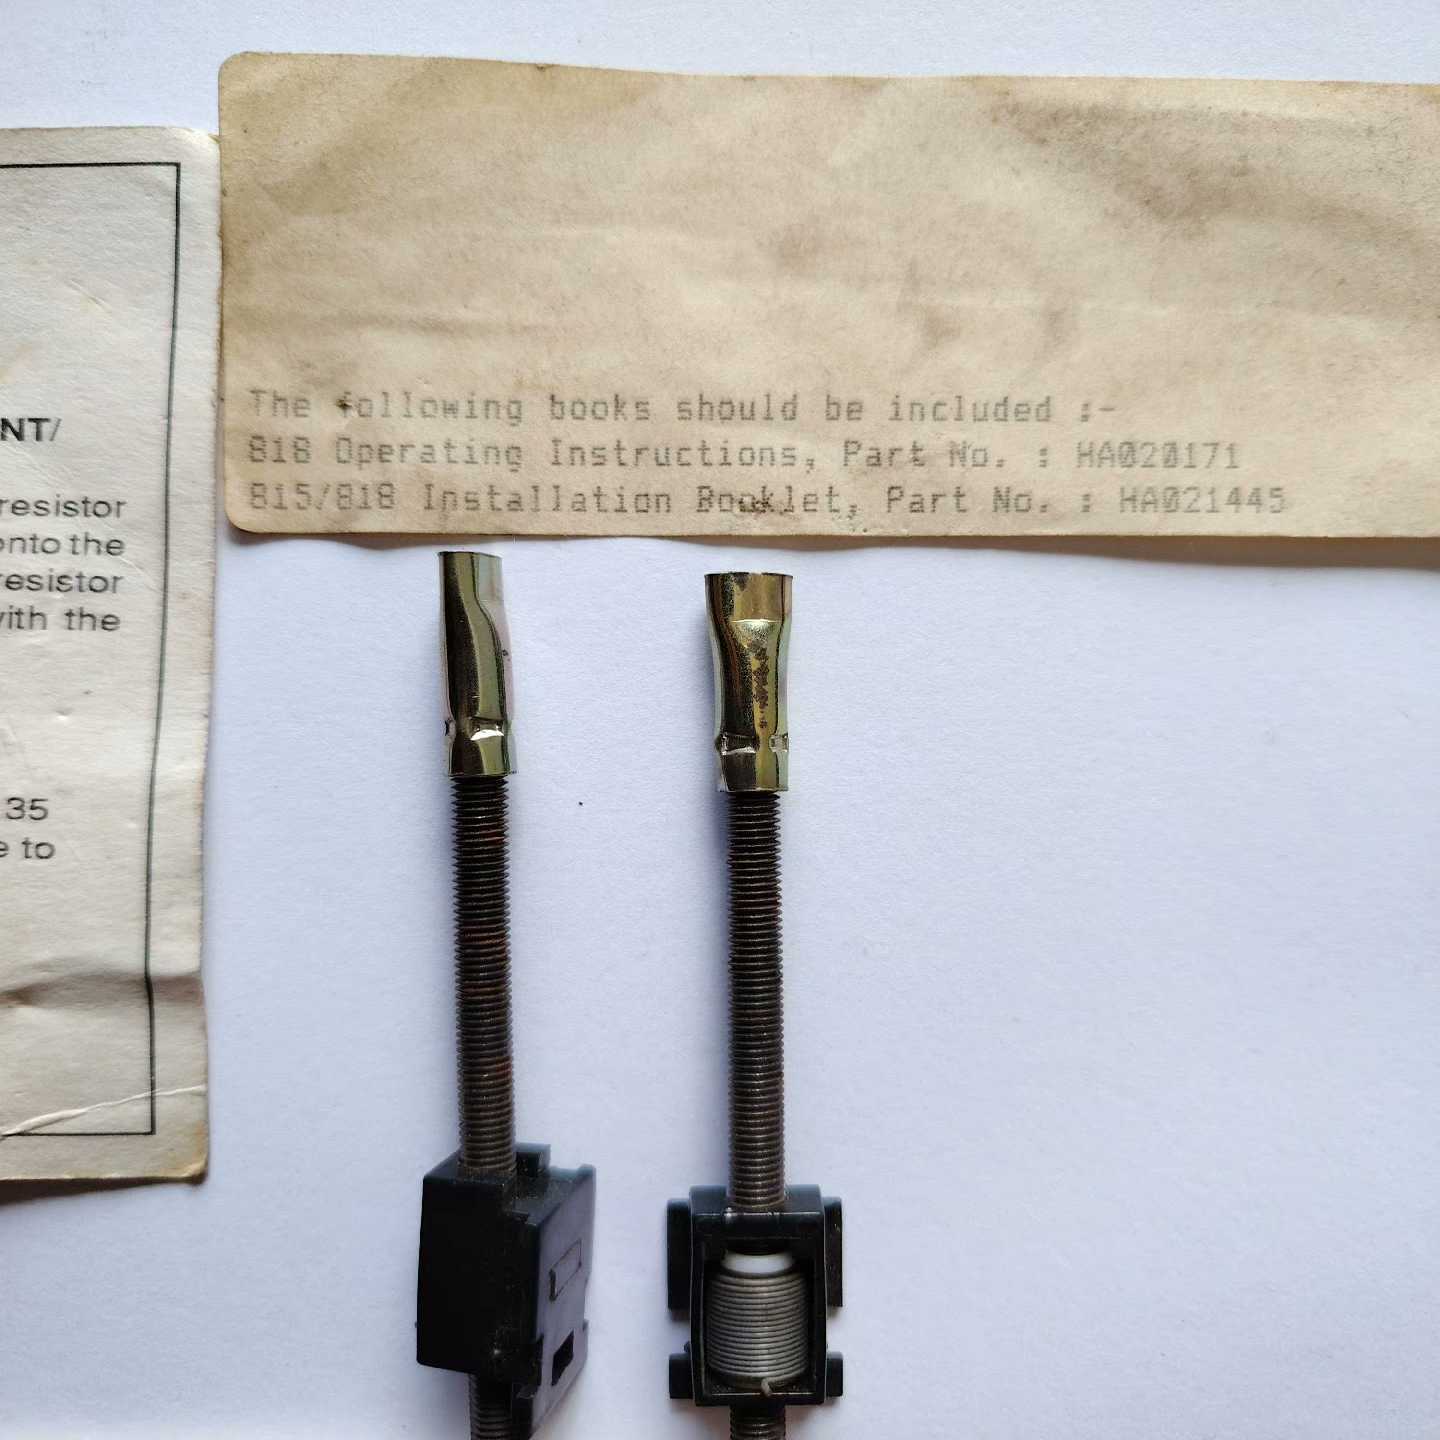 NT/
resistor
onto the
resistor
with the
35
e to
The following books should be included :-
818 Operating Instructions, Part No. : HA020171
815/818 Installation Booklet, Part No. : HA021445